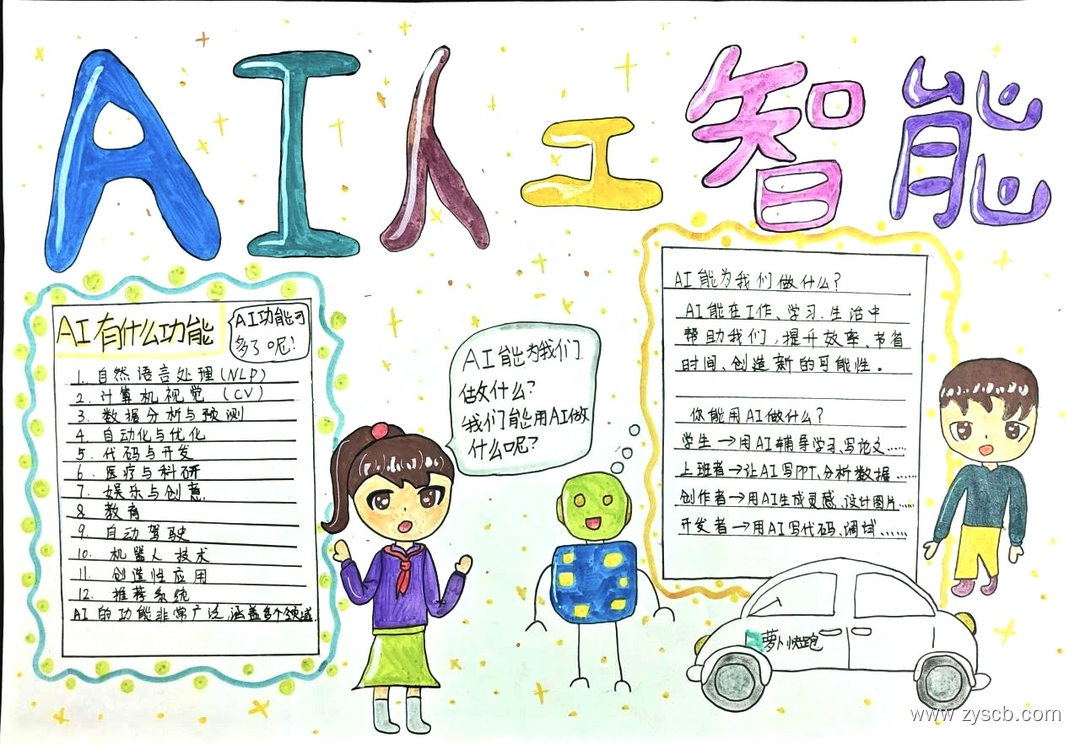 AI人工智能
AI有什么功能
AI功能可
多了呢!
1. 自然语言处理(NLP)
2. 计算机视觉 (CV)
3. 数据分析与预测
4. 自动化与优化
5. 代码与开发
6. 医疗与科研
7. 娱乐与创意
8. 教育
9. 自动驾驶
10. 机器人技术
11. 创造性应用
12. 推荐系统
AI的功能非常广泛,涵盖多个领域.
AI能为我们
做什么?
我们能用AI做
什么呢?
AI能为我们做什么?
AI能在工作、学习、生活中
帮助我们,提升效率、节省
时间、创造新的可能性。
你能用AI做什么?
学生→用AI辅导学习、写论文......
上班者→让AI写PPT、分析数据......
创作者→用AI生成灵感、设计图片......
开发者→用AI写代码、调试......
萝卜快跑
www.zyscb.com